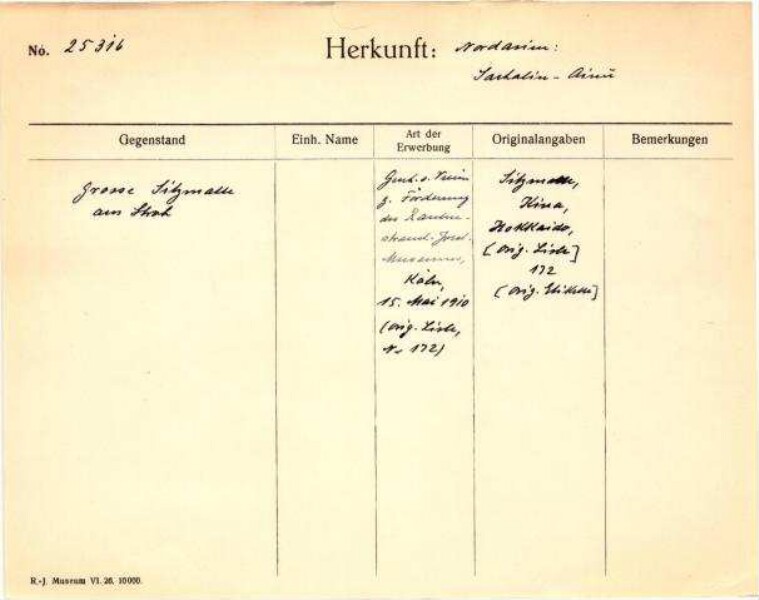 No. 25316
Herkunft: Nordasien:
Sachalin - Ainu
Gegenstand
Einh. Name
Art der
Erwerbung
Originalangaben
Bemerkungen
Grosse Sitzmatte
aus Stroh
Gesch. v. Verein
z. Förderung
des Rauten-
strauch-Joest-
Museums,
Köln,
15. Mai 1910
(orig. Liste,
Nr 172)
Sitzmatte,
Kina,
Hokkaido,
[orig. Liste]
172
[orig. Etikette]
R.-J. Museum VI. 26. 10000.